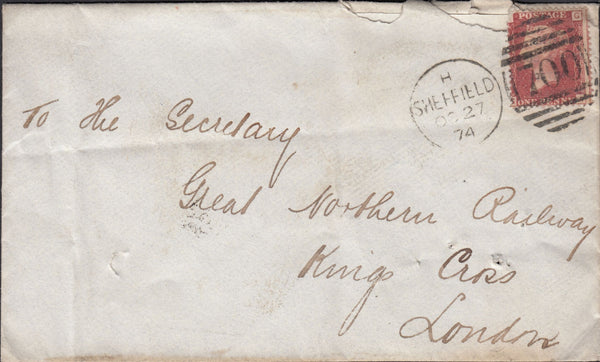 POSTAGE
G
700
H
SHEFFIELD
OC 27
74
To the Secretary
Great Northern Railway
Kings Cross
London